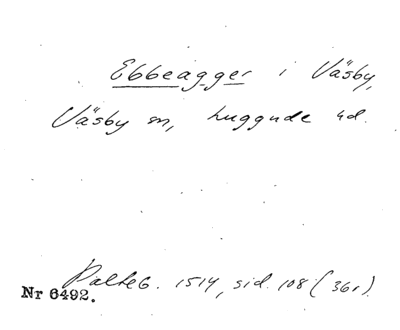 Ebbeagger i Väsby,
Väsby sn, Luggude hd.
Palteb. 1514, sid. 108 (361).
Nr 6492.